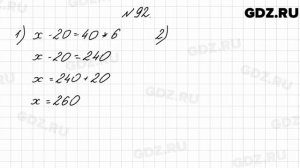 GDZ.RU
№ 92
1) x - 20 = 40 * 6 2)
x - 20 = 240
x = 240 + 20
x = 260